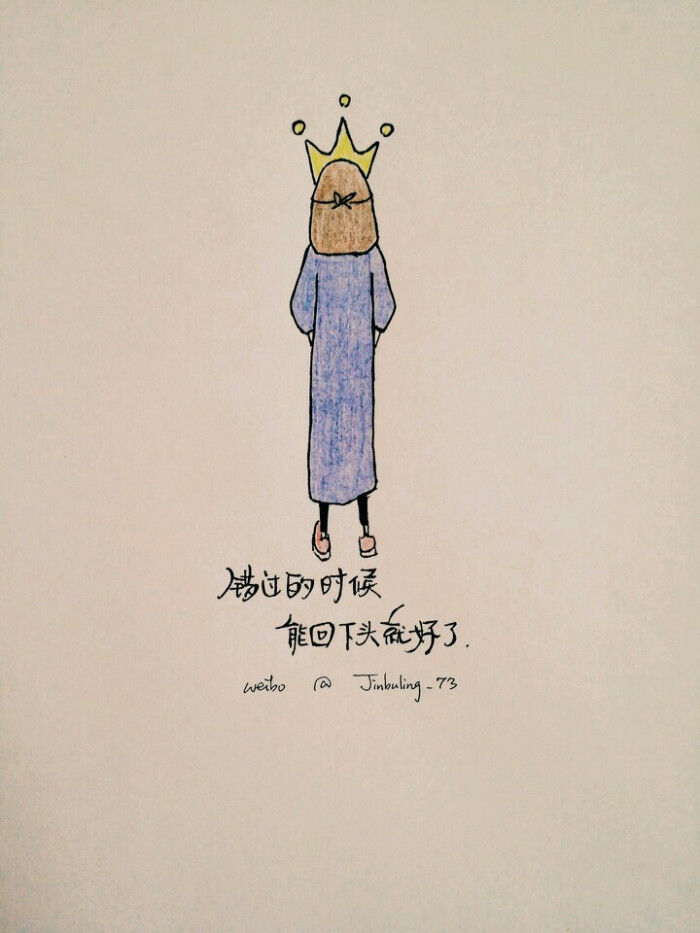 错过的时候
能回下头就好了.
weibo @ Jinbuling_73